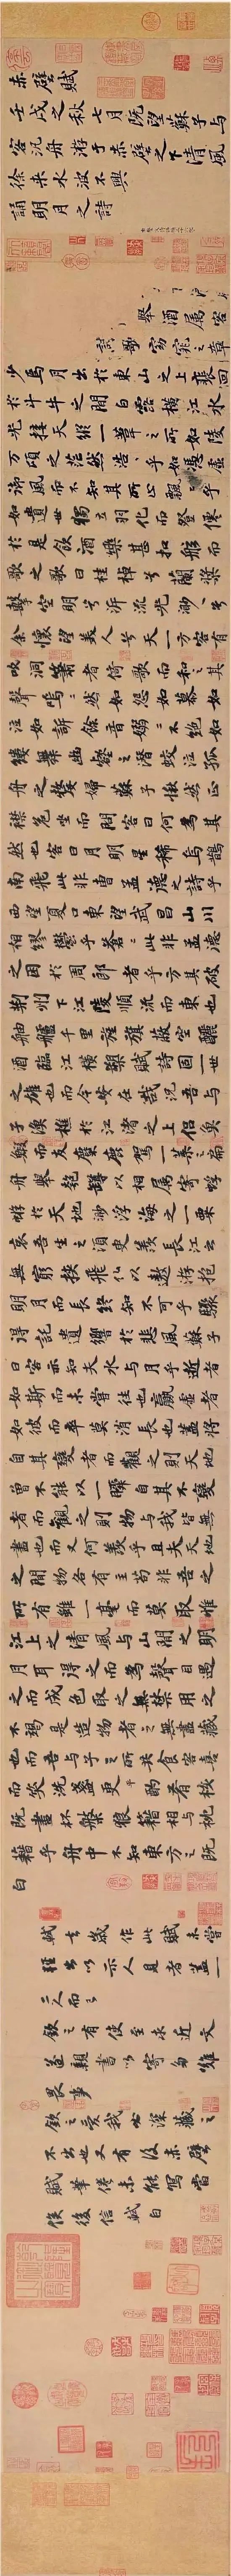 赤壁賦
壬戌之秋七月既望蘇子与
客汎舟游于赤壁之下清風
徐來水波不興
誦明月之詩
舉酒属客
歌窈窕之章
少焉月出於東山之上裴回
於斗牛之間白露橫江水
光接天縱一葦之所如陵
万頃之茫然浩浩乎如馮虛
御風而不知其所止飄飄乎
如遺世獨立羽化而登僊
於是飲酒樂甚扣舷而
歌之歌曰桂棹兮蘭槳
擊空明兮泝流光渺渺兮
余懷望美人兮天一方客有
吹洞簫者倚歌而和之其
聲嗚嗚然如怨如慕如
泣如訴餘音嫋嫋不絕如
縷舞幽壑之潛蛟泣孤
舟之嫠婦蘇子愀然正
襟危坐而問客曰何為其
然也客曰月明星稀烏鵲
南飛此非曹孟德之詩乎
西望夏口東望武昌山川
相繆鬱乎蒼蒼此非孟德
之困於周郎者乎方其破
荊州下江陵順流而東也
舳艫千里旌旗蔽空釃
酒臨江橫槊賦詩固一世
之雄也而今安在哉況吾与
子漁樵於江渚之上侶魚
鰕而友麋鹿駕一葉之扁
舟舉匏罇以相属寄蜉
蝣於天地渺浮海之一粟
哀吾生之須臾羨長江之
無窮挾飛仙以遨游抱
明月而長終知不可乎驟
得託遺響於悲風蘇子
曰客亦知夫水与月乎逝者
如斯而未嘗往也贏虛者
如彼而卒莫消長也蓋將
自其變者而觀之則天地
曾不能以一瞬自其不變
者而觀之則物与我皆無
盡也而又何羨乎且夫天地
之間物各有主苟非吾之
所有雖一毫而莫取惟
江上之清風与山間之明
月耳得之而為聲目遇
之而成色取之無禁用之
不竭是造物者之無盡藏
也而吾与子之所共食客喜
而笑洗盞更酌肴核
既盡杯盤狼藉相与枕
藉乎舟中不知東方之既
白
軾去歲作此賦未嘗
輕出以示人見者蓋一
二人而已
欽之有使至求近文
遂親書以寄多難
畏事
欽之愛我必深藏之
不出也又有後赤壁
賦筆倦未能寫當
俟後信軾白